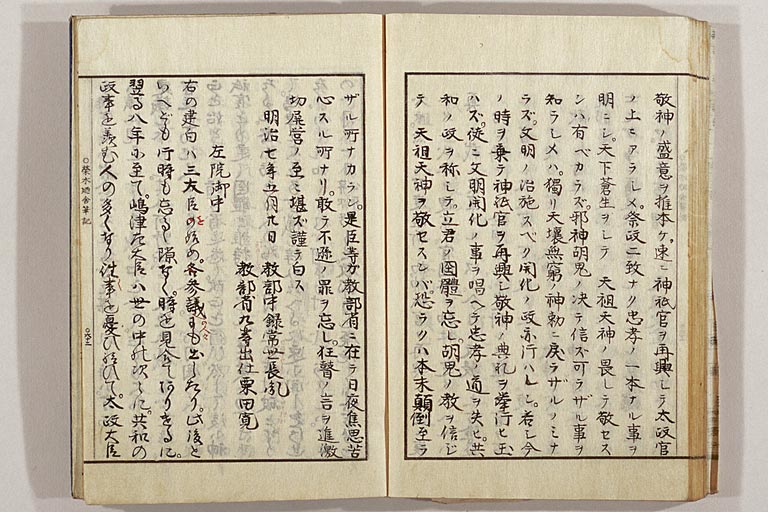 敬神ノ盛意ヲ推本ケ、速ニ神祇官ヲ再興シテ太政官
ノ上ニアラシメ、祭政二致ナク忠孝ノ一本ナル事ヲ
明ニシ、天下蒼生ヲシテ 天祖天神ノ畏レテ敬セス
ンハ有ベカラズ、邪神胡鬼ノ決テ信ズ可ラザル事ヲ
知ラシメハ、獨リ天壌無窮ノ神勅ニ戻ラザルノミナ
ラズ、文明ノ治施スベク開化ノ政亦行ハレン、若シ今
ノ時ヲ棄テ神祇官ヲ再興シ敬神ノ典礼ヲ挙行ヒ玉
ハズ、徒ニ文明開化ノ事ヲ唱ヘテ忠孝ノ道ヲ失ヒ、共
和ノ政ヲ称シテ、立君ノ国體ヲ忘レ、胡鬼ノ教ヲ信ジ
テ 天祖天神ヲ敬セスンバ、恐ラクハ本末顛倒至ラ
ザル所ナカラン、是臣等カ教部省ニ在テ日夜焦思苦
心スル所ナリ、敢テ不遜ノ罪ヲ忘レ、狂瞽ノ言ヲ進激
切屏営ノ至ニ堪ズ謹テ白ス
明治七年五月九日 教部中録常世長胤
教部省九等出仕栗田寛
左院御中
右の建白ハ三大臣の始め、各参議の人々にも出したり、此後と
いへども片時も忘るゝ隙なく、時を見合てありをるに、
翌る八年に至て、嶋津左大臣ハ世の中の次々に、共和の
政事を羨む人の多くなり徃事を憂ひ給ひて、太政大臣
○榮木廼舎筆記